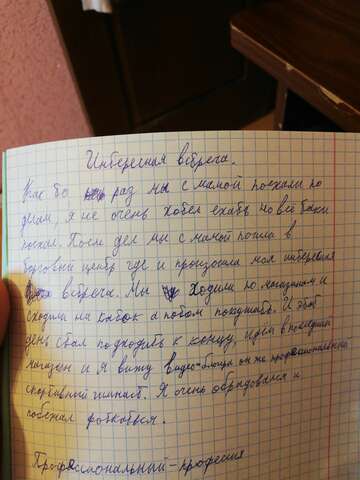 Интересная встреча.
Как то раз мы с мамой поехали по
делам, я не очень хотел ехать но всё таки
поехал. После дел мы с мамой пошли в
торговый центр где и произошла моя интересная
встреча. Мы ходили по магазинам и
сходили на каток а потом покушать. И этот
день стал подходить к концу, идём в последний
магазин и я вижу видео-блогера он же профессиональный
спортивный гимнаст. Я очень обрадовался и
побежал фоткаться.
Профессиональный-профессия